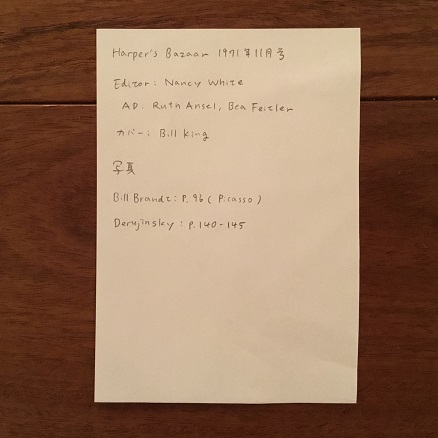 Harper's Bazaar 1971年11月号
Editor: Nancy White
AD: Ruth Ansel, Bea Feitler
カバー: Bill King
写真
Bill Brandt: P.96 (Picasso)
Derujinsky: P.140-145